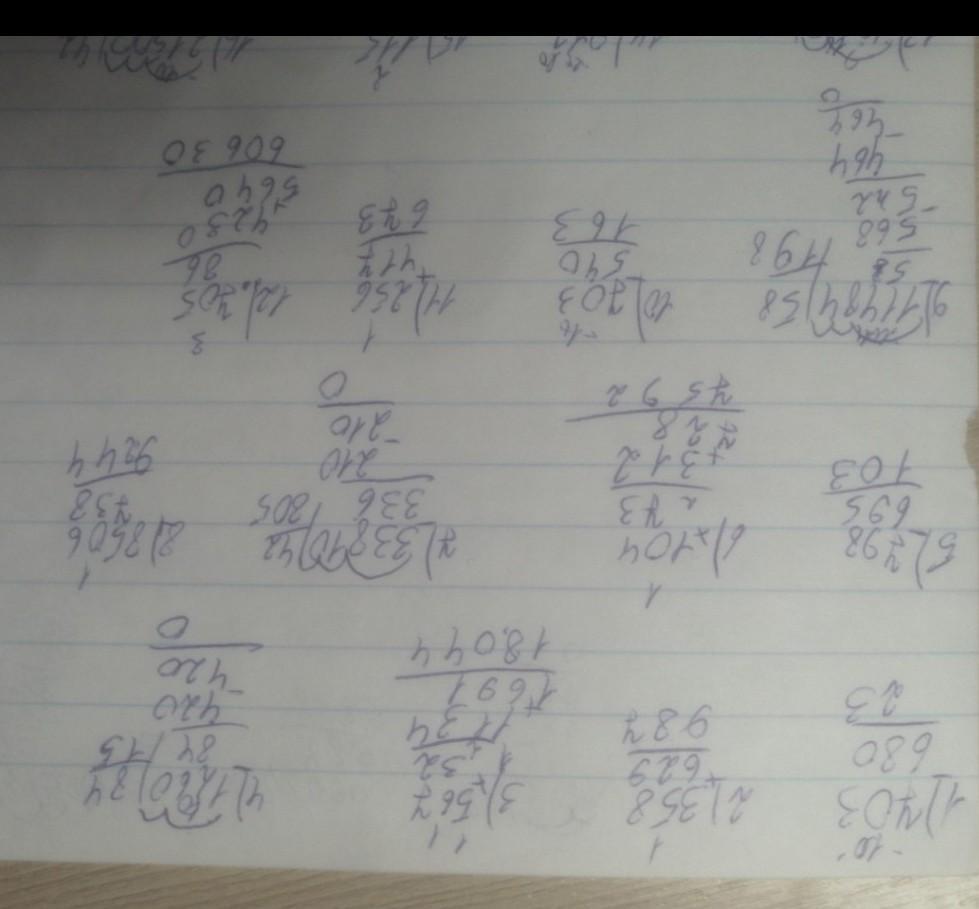 -10
1) 703
680
23
1
2) 358
+ 629
987
1 1
3) 567
× 32
1134
+ 1691
18044
84
84 / 15
420
- 420
0
5) 798
695
103
1
6) 104
× 73
312
+ 728
7592
7) 33810 | 42
336 | 805
210
- 210
0
1
8) 8506
738
9244
9) 11484 | 58
58 | 198
568
- 522
464
- 464
0
-10
10) 703
540
163
1
11) 256
+ 417
673
3
12) 705
86
4230
+ 5640
60630
2
15) 115